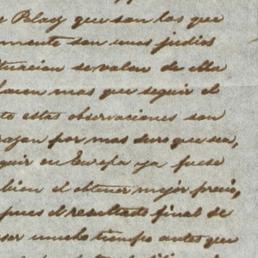 Blacz que son los que
mente son unos judios
tuacion se valen de ella
hacen mas que seguir el
to estas observaciones son
por mas duro que sea,
guir en Europa ya fuese
bien el obtener mejor precio,
pues el resultado final de
ser mucho tiempo antes que